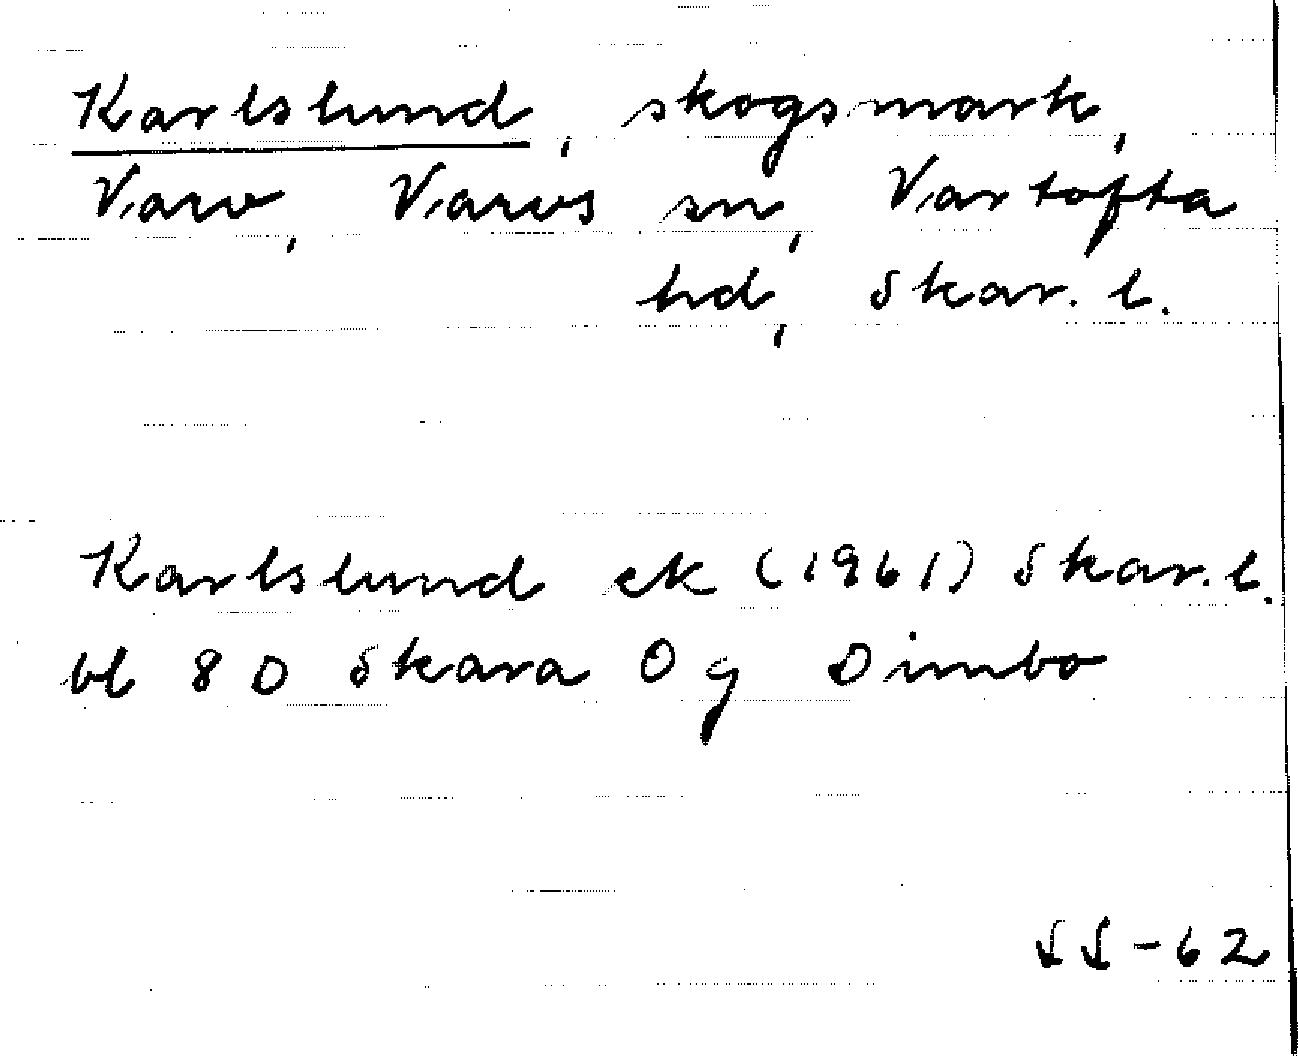 Karlslund, skogsmark,
Varv, Varvs sn, Vartofta
hd, Skar. l.
Karlslund ek (1961) Skar. l.
bl 8D Skara Og Dimbo
SS-62